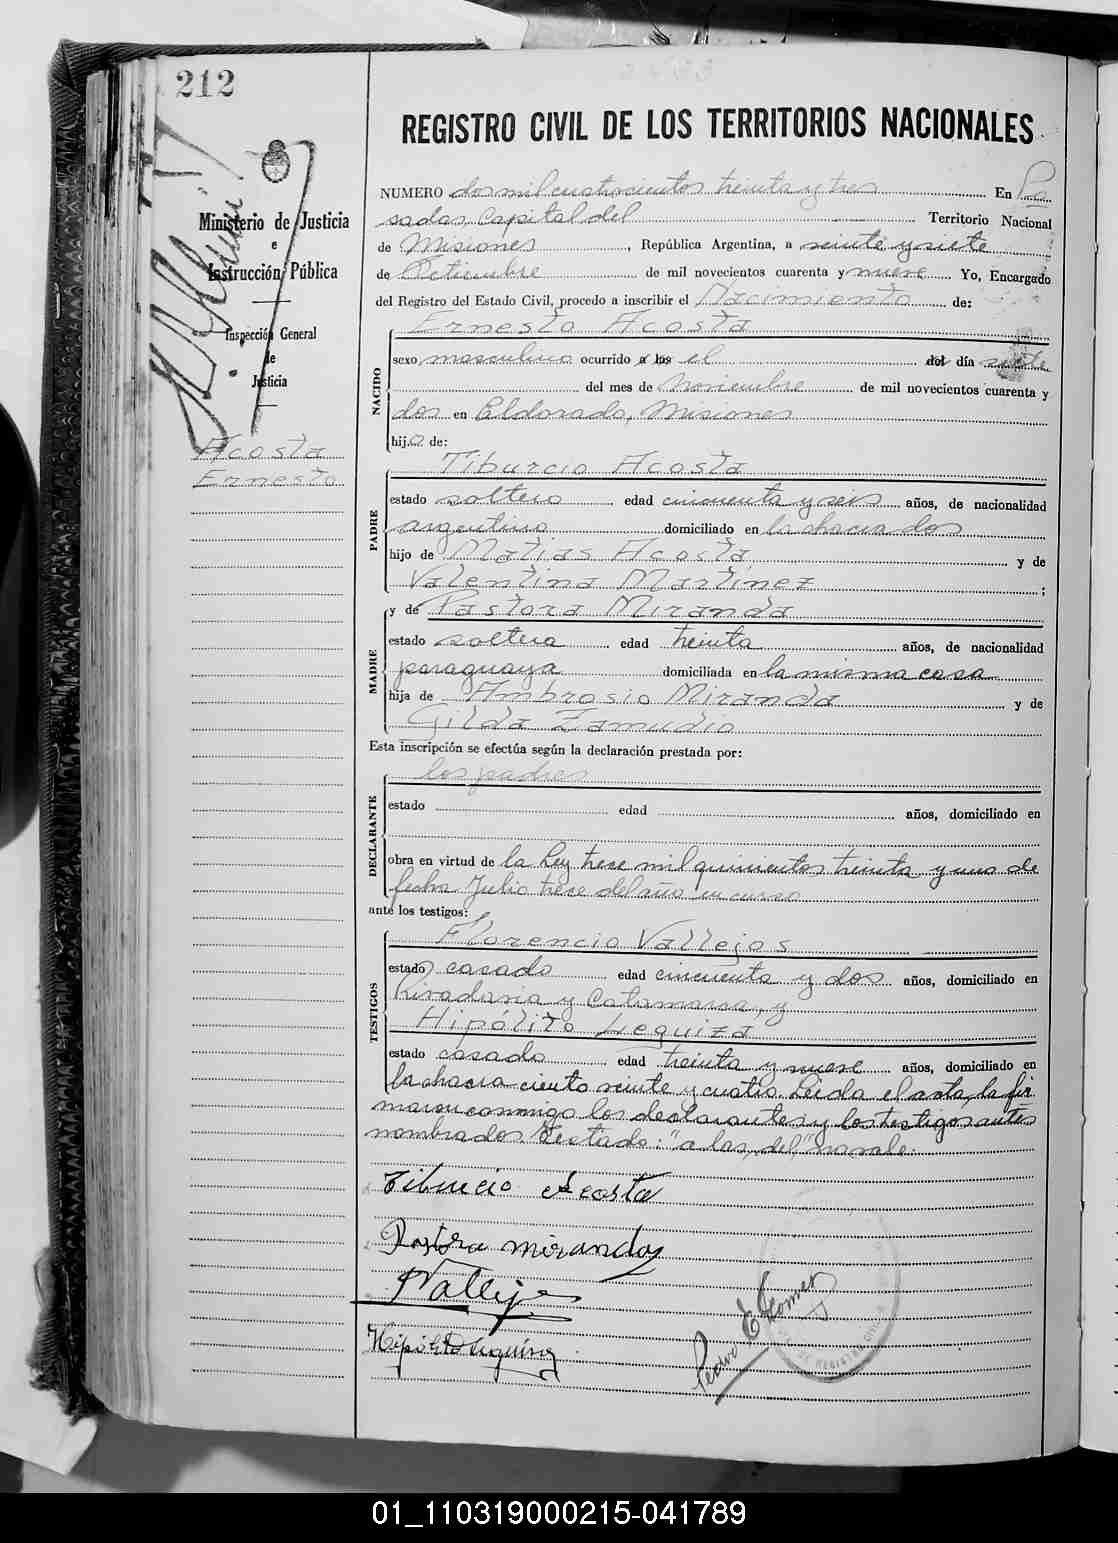 212
REGISTRO CIVIL DE LOS TERRITORIOS NACIONALES
NUMERO dos mil cuatrocientos treinta y tres En Po
sadas, Capital del Territorio Nacional
de Misiones, República Argentina, a veinte y siete
de Setiembre de mil novecientos cuarenta y nueve Yo, Encargado
del Registro del Estado Civil, procedo a inscribir el Nacimiento de:
Ministerio de Justicia
e
Instrucción Pública
Inspección General
de
Justicia
Acosta
Ernesto
NACIDO
Ernesto Acosta
sexo masculino ocurrido a las el del día siete
del mes de Noviembre de mil novecientos cuarenta y
dos en Eldorado, Misiones
hijo de:
PADRE
Tiburcio Acosta
estado soltero edad cincuenta y seis años, de nacionalidad
argentino domiciliado en la chacra dos
hijo de Matias Acosta y de
Valentina Martinez ;
MADRE
y de Pastora Miranda
estado soltera edad treinta años, de nacionalidad
paraguaya domiciliada en la misma casa
hija de Ambrosio Miranda y de
Gilda Zamudio
Esta inscripción se efectúa según la declaración prestada por:
DECLARANTE
los padres
estado edad años, domiciliado en
obra en virtud de la Ley trece mil quinientos treinta y uno de
fecha Julio trece del año en curso
ante los testigos:
TESTIGOS
Florencio Vallejos
estado casado edad cincuenta y dos años, domiciliado en
Rivadavia y Catamarca, y
Hipólito Leguiza
estado casado edad treinta y nueve años, domiciliado en
la chacra ciento veinte y cuatro. Leida el acta, la fir
maron conmigo los declarantes y los testigos antes
nombrados. Testado: "a las, del," no vale.
Tiburcio Acosta
Pastora Miranda
FVallejos
Hipólito Leguiza
Pedro E
DE REGISTRO CIVIL
01_110319000215-041789